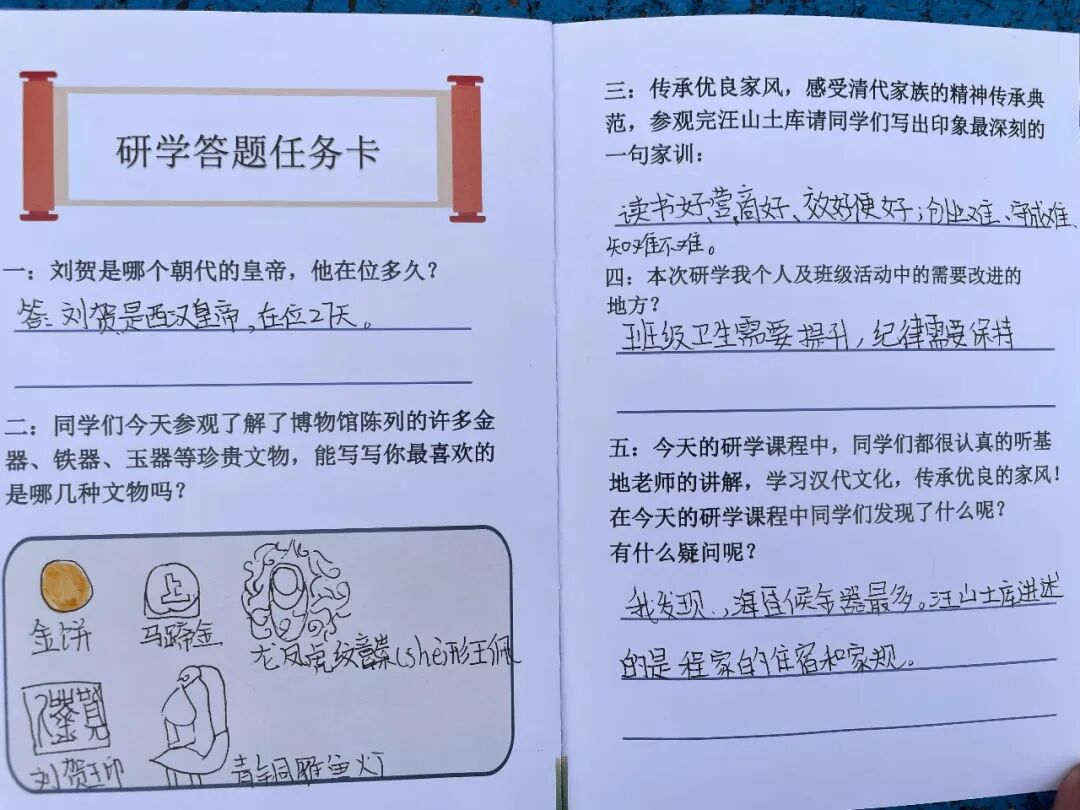 研学答题任务卡
一：刘贺是哪个朝代的皇帝，他在位多久？
答：刘贺是西汉皇帝，在位27天。
二：同学们今天参观了解了博物馆陈列的许多金
器、铁器、玉器等珍贵文物，能写写你最喜欢的
是哪几种文物吗？
上
金饼
马蹄金
龙凤虎纹韘(shè)形玉佩
刘贺玉印
青铜雁鱼灯
三：传承优良家风，感受清代家族的精神传承典
范，参观完汪山土库请同学们写出印象最深刻的
一句家训：
读书好、营商好、效好便好；创业难、守成难、
知难不难。
四：本次研学我个人及班级活动中的需要改进的
地方？
班级卫生需要提升，纪律需要保持
五：今天的研学课程中，同学们都很认真的听基
地老师的讲解，学习汉代文化，传承优良的家风！
在今天的研学课程中同学们发现了什么呢？
有什么疑问呢？
我发现，海昏候金器最多。汪山土库讲述
的是程家的住宿和家规。